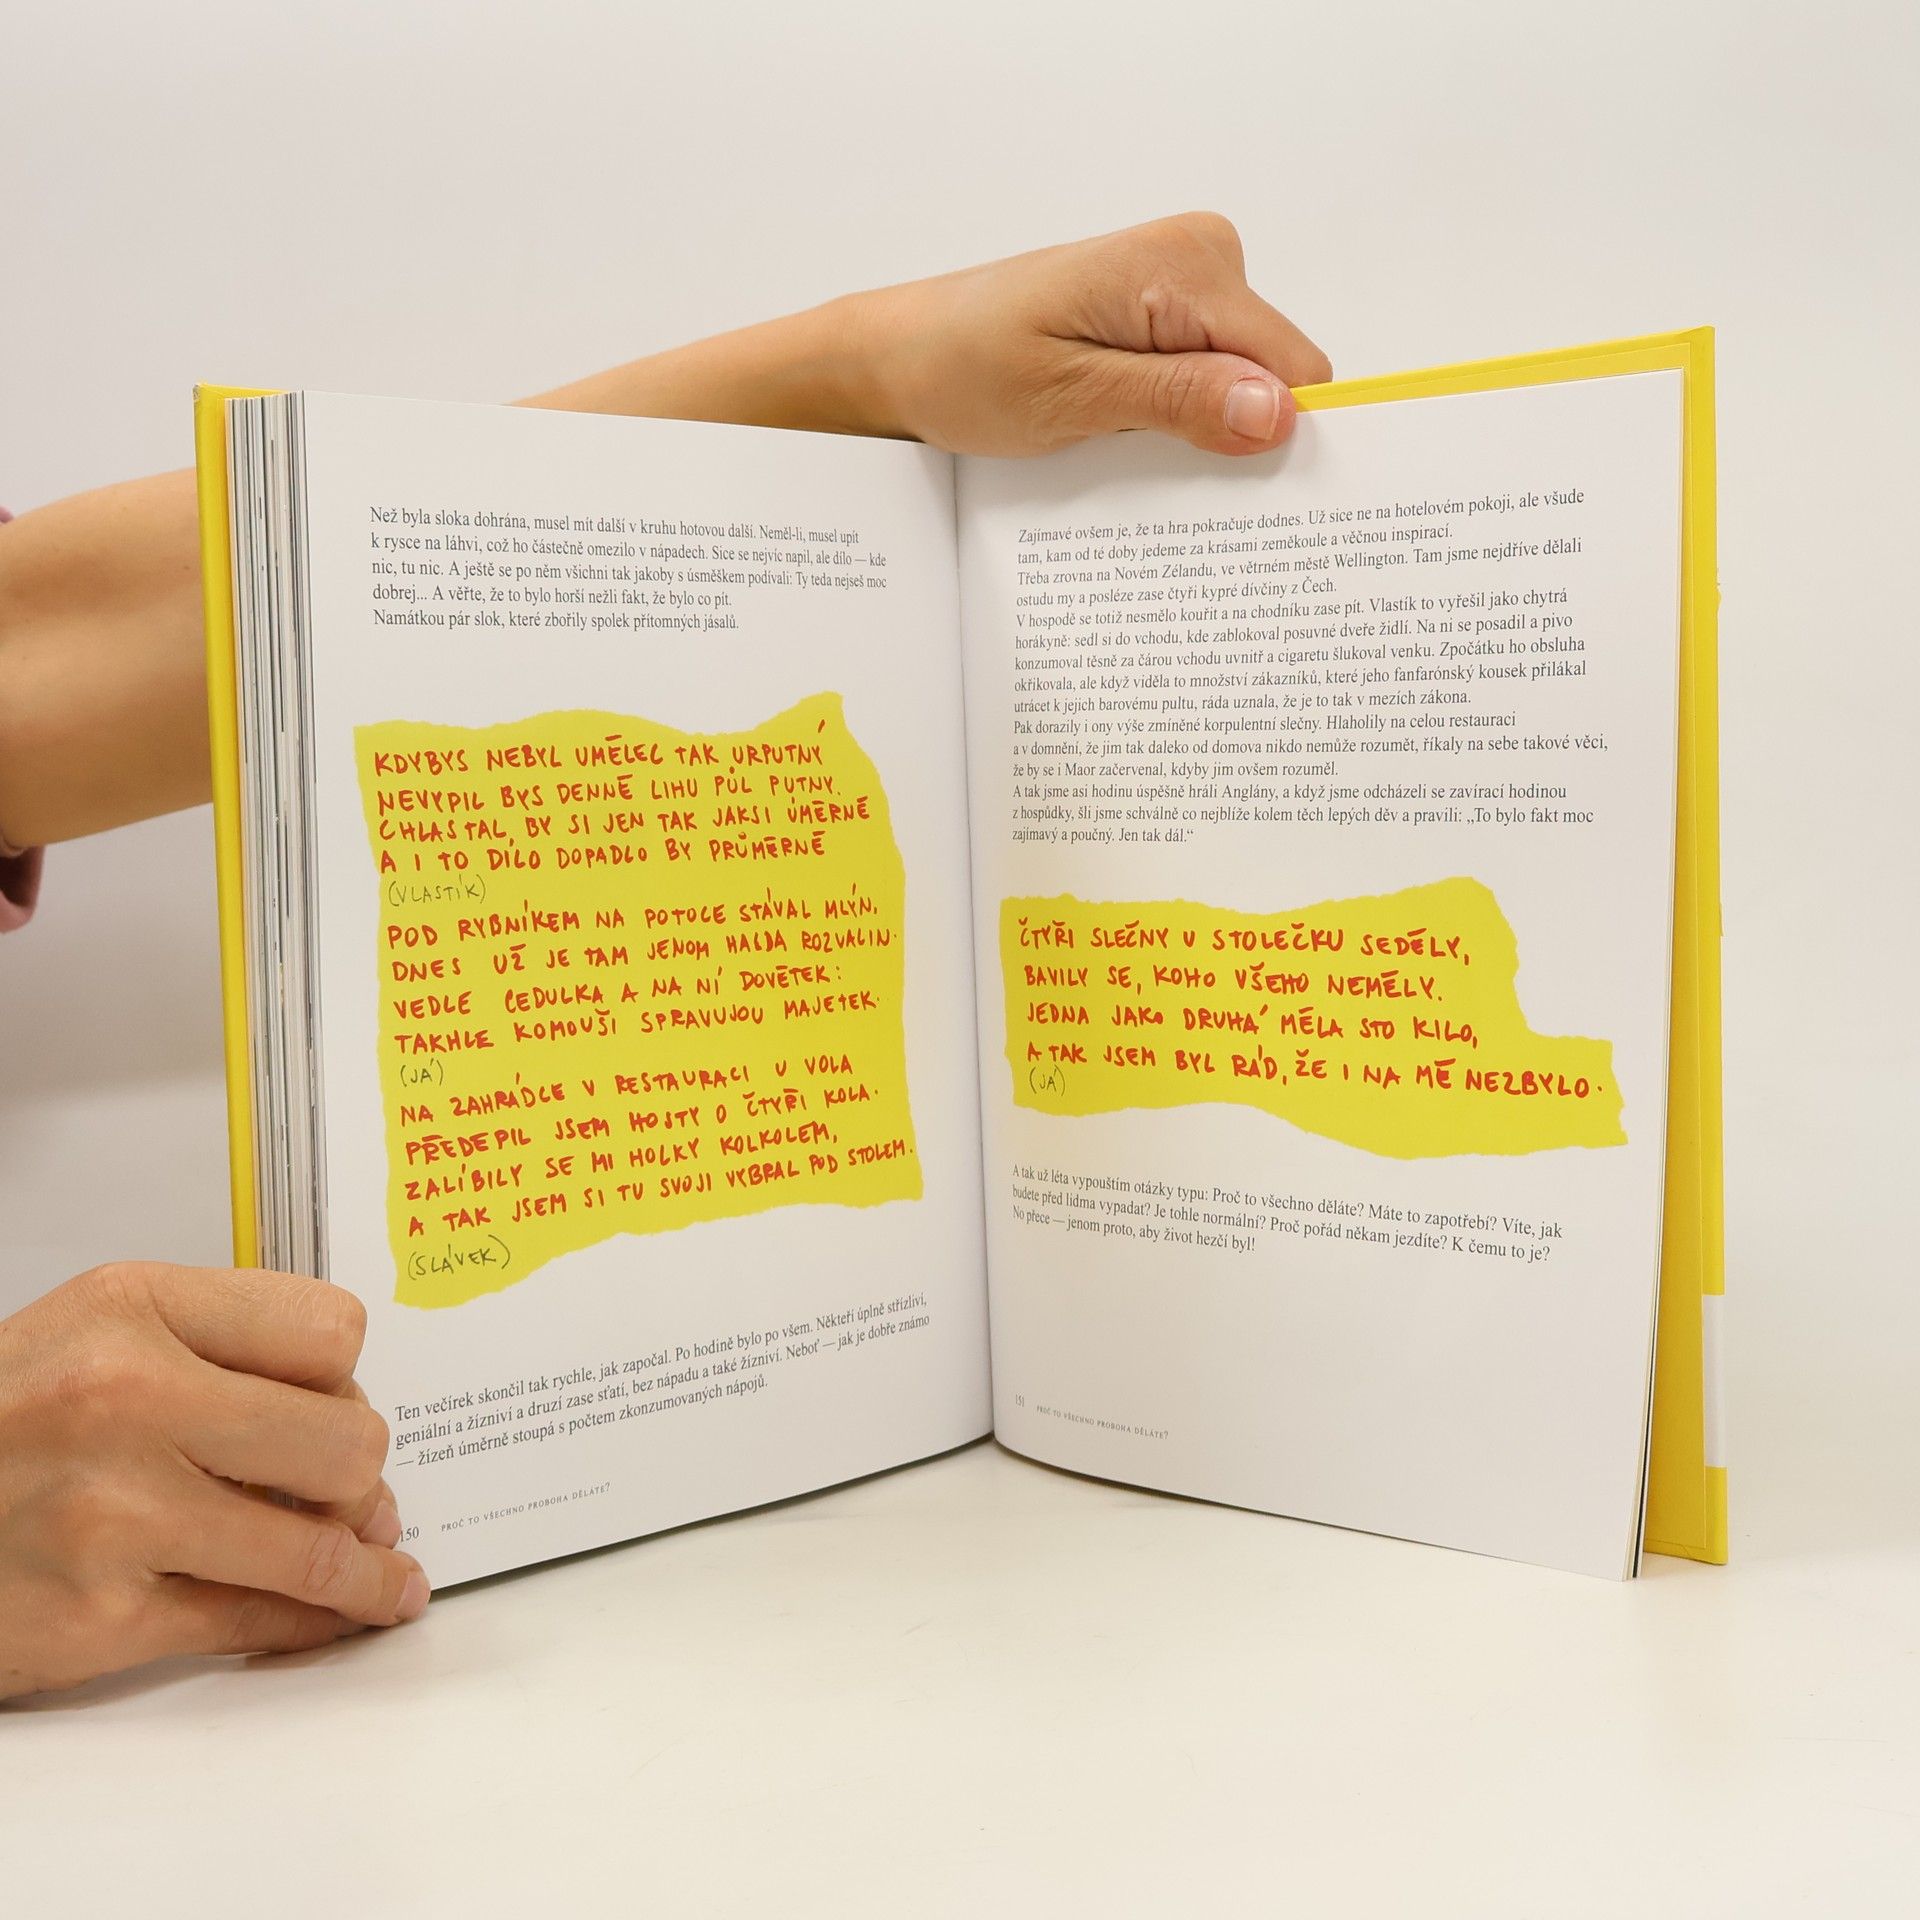 Než byla sloka dohrána, musel mít další v kruhu hotovou další. Neměl-li, musel upít
k rysce na láhvi, což ho částečně omezilo v nápadech. Sice se nejvíc napil, ale dílo — kde
nic, tu nic. A ještě se po něm všichni tak jakoby s úsměškem podívali: Ty teda nejseš moc
dobrej... A věřte, že to bylo horší nežli fakt, že bylo co pít.
Namátkou pár slok, které zbořily spolek přítomných jásalů.
KDYBYS NEBYL UMĚLEC TAK URPUTNÝ
NEVYPIL BYS DENNĚ LIHU PŮL PUTNY.
CHLASTAL BY SI JEN TAK JAKSI ÚMĚRNĚ
A I TO DÍLO DOPADLO BY PRŮMĚRNĚ
(VLASTÍK)
POD RYBNÍKEM NA POTOCE STÁVAL MLÝN,
DNES UŽ JE TAM JENOM HALDA ROZVALIN.
VEDLE CEDULKA A NA NÍ DOVĚTEK:
TAKHLE KOMOUŠI SPRAVUJOU MAJETEK.
(JÁ)
NA ZAHRÁDCE V RESTAURACI U VOLA
PŘEDEPIL JSEM HOSTY O ČTYŘI KOLA.
ZALÍBILY SE MI HOLKY KOLKOLEM,
A TAK JSEM SI TU SVOJI VYBRAL POD STOLEM.
(SLÁVEK)
Ten večírek skončil tak rychle, jak započal. Po hodině bylo po všem. Někteří úplně střízliví,
geniální a žízniví a druzí zase sťatí, bez nápadu a také žízniví. Neboť — jak je dobře známo
— žízeň úměrně stoupá s počtem zkonzumovaných nápojů.
150 PROČ TO VŠECHNO PROBOHA DĚLÁTE?
Zajímavé ovšem je, že ta hra pokračuje dodnes. Už sice ne na hotelovém pokoji, ale všude
tam, kam od té doby jedeme za krásami zeměkoule a věčnou inspirací.
Třeba zrovna na Novém Zélandu, ve větrném městě Wellington. Tam jsme nejdříve dělali
ostudu my a posléze zase čtyři kypré dívčiny z Čech.
V hospodě se totiž nesmělo kouřit a na chodníku zase pít. Vlastík to vyřešil jako chytrá
horákyně: sedl si do vchodu, kde zablokoval posuvné dveře židlí. Na ni se posadil a pivo
konzumoval těsně za čárou vchodu uvnitř a cigaretu šlukoval venku. Zpočátku ho obsluha
okřikovala, ale když viděla to množství zákazníků, které jeho fanfarónský kousek přilákal
utrácet k jejich barovému pultu, ráda uznala, že je to tak v mezích zákona.
Pak dorazily i ony výše zmíněné korpulentní slečny. Hlaholily na celou restauraci
a v domnění, že jim tak daleko od domova nikdo nemůže rozumět, říkaly na sebe takové věci,
že by se i Maor začervenal, kdyby jim ovšem rozuměl.
A tak jsme asi hodinu úspěšně hráli Anglány, a když jsme odcházeli se zavírací hodinou
z hospůdky, šli jsme schválně co nejblíže kolem těch lepých děv a pravili: „To bylo fakt moc
zajímavý a poučný. Jen tak dál.“
ČTYŘI SLEČNY U STOLEČKU SEDĚLY,
BAVILY SE, KOHO VŠEHO NEMĚLY.
JEDNA JAKO DRUHÁ MĚLA STO KILO,
A TAK JSEM BYL RÁD, ŽE I NA MĚ NEZBYLO.
(JÁ)
A tak už léta vypouštím otázky typu: Proč to všechno děláte? Máte to zapotřebí? Víte, jak
budete před lidma vypadat? Je tohle normální? Proč pořád někam jezdíte? K čemu to je?
No přece — jenom proto, aby život hezčí byl!
151 PROČ TO VŠECHNO PROBOHA DĚLÁTE?